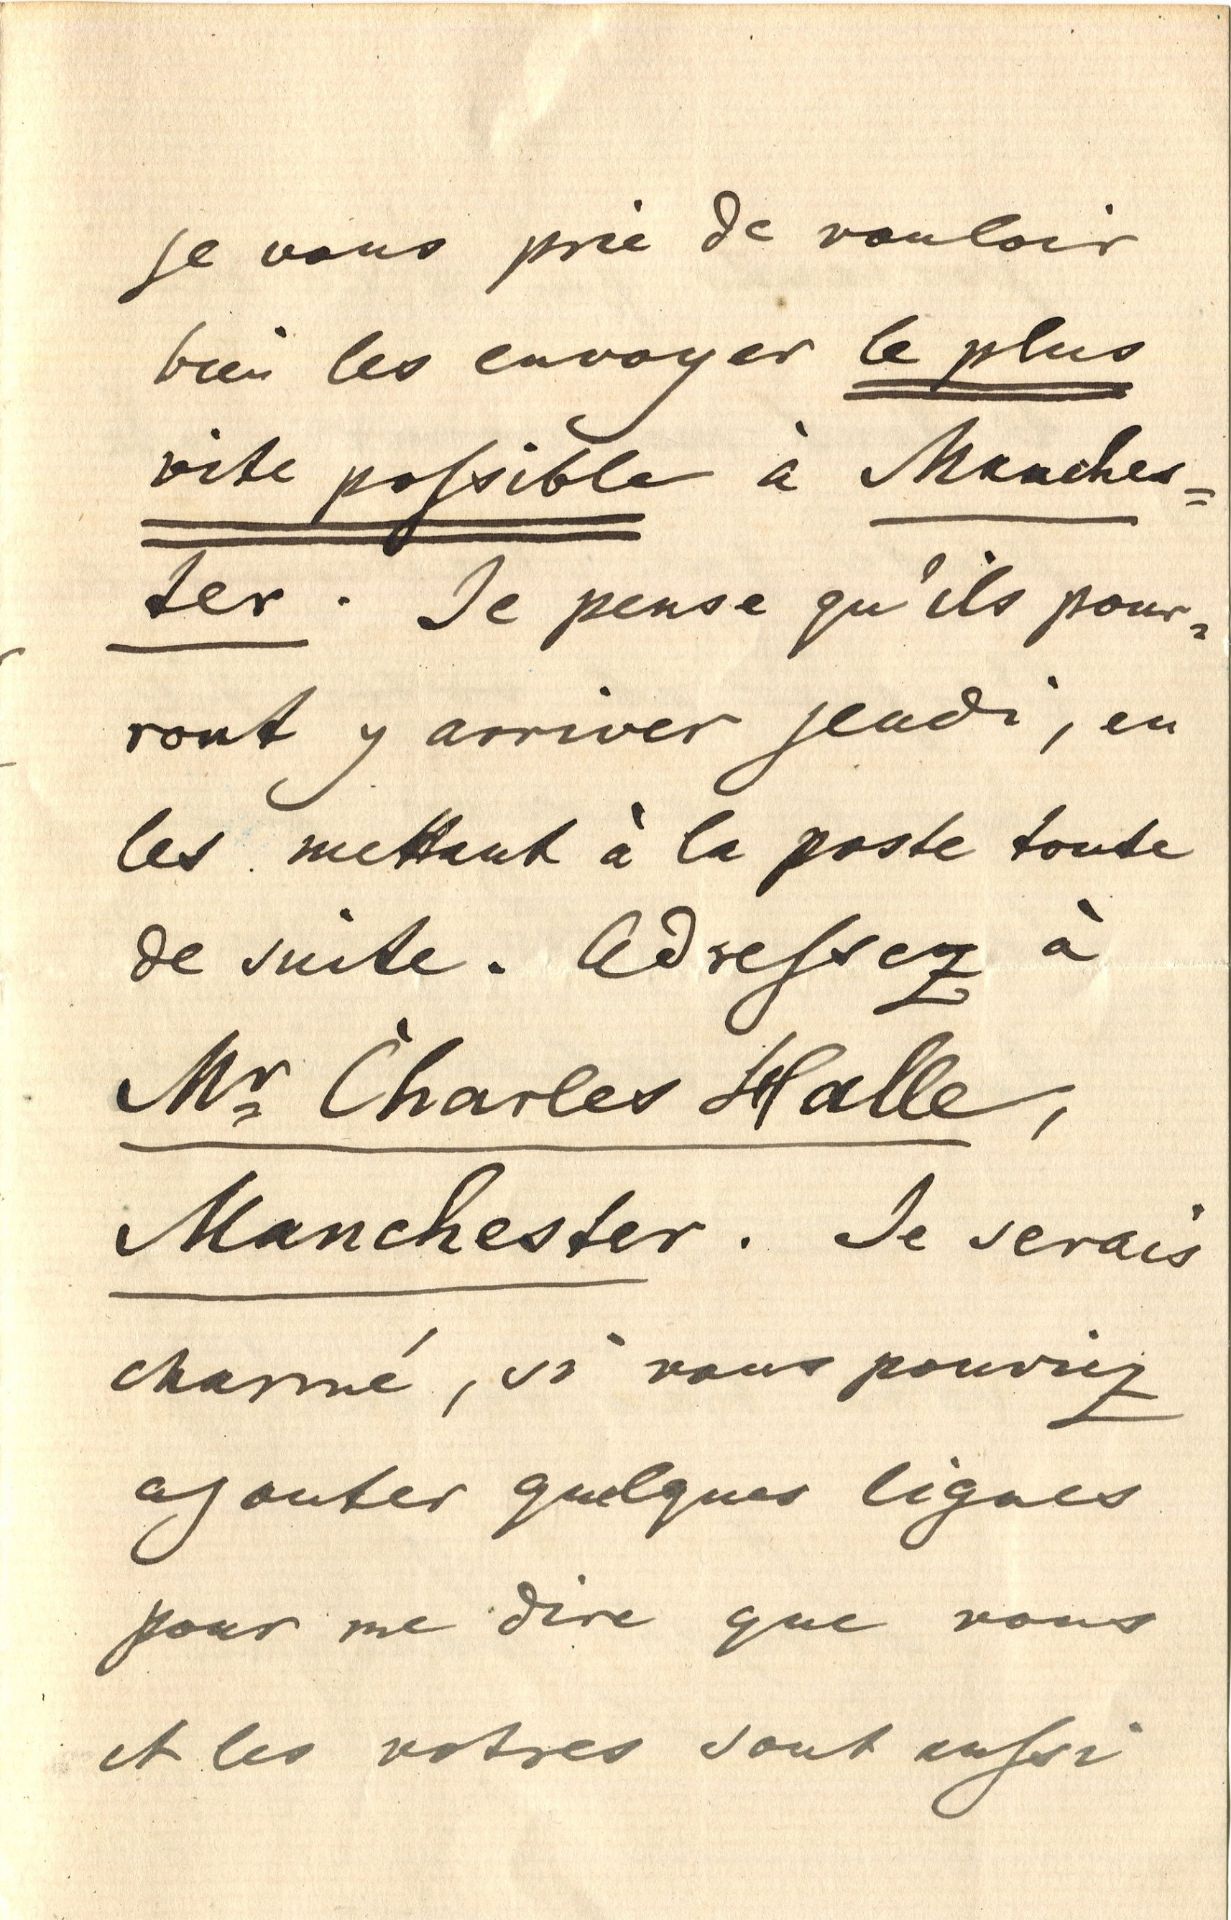 je vous prie de vouloir
bien les envoyer le plus
vite possible à Manches=
ter. Je pense qu'ils pour=
ront y arriver jeudi, en
les mettant à la poste toute
de suite. Adressez à
Mr Charles Halle,
Manchester. Je serais
charmé, si vous pouviez
ajouter quelques lignes
pour me dire que vous
et les votres sont aussi